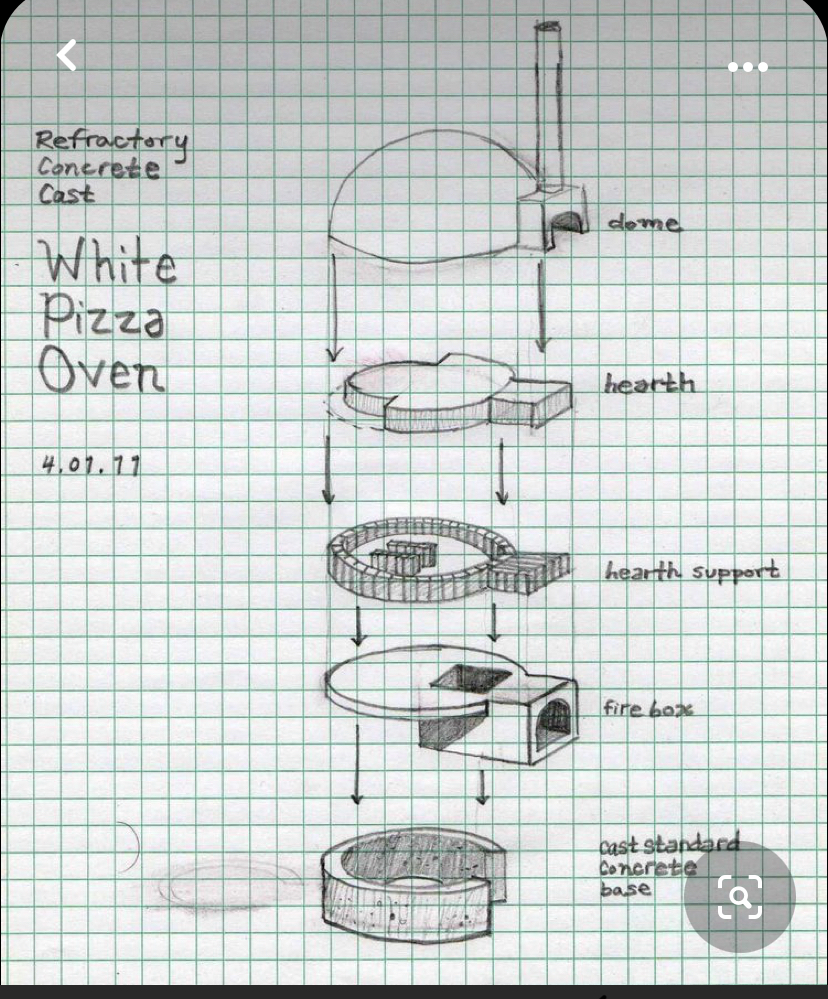 Refractory
Concrete
Cast
White
Pizza
Oven
4.01.11
dome
hearth
hearth support
fire box
cast standard
concrete
base